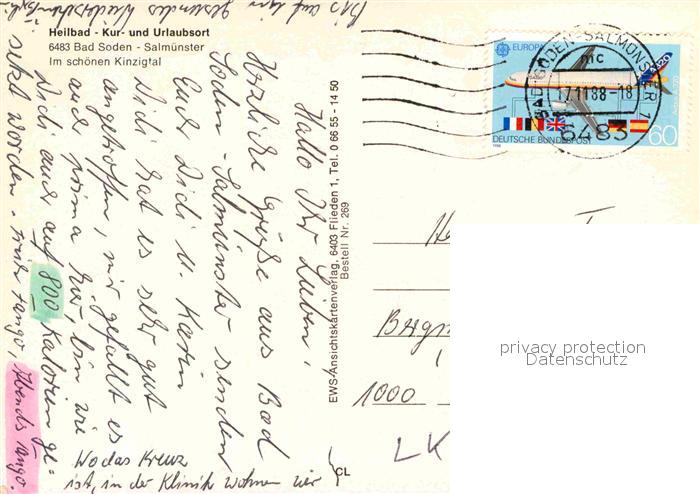 Heilbad - Kur- und Urlaubsort
6483 Bad Soden - Salmünster
Im schönen Kinzigtal
Hallo Ihr Lieben,
Herzliche Grüße aus Bad
Soden-Salmünster senden
Euch Didi u. Karin
Didi hat es sehr gut
angetroffen, mir gefällt es
auch prima hier, bin wie
Didi auch auf 800 Kalorien ge-
setzt worden. Abends Tango.
Bis auf ein gesundes
Wo das Kreuz
ist, in der Klinik wohnen wir
EWS/Ansichtskartenverlag, 6403 Flieden 1, Tel. 0 66 55 - 14 50
Bestell Nr. 269
CL
EUROPA
A320
Airbus A320
DEUTSCHE BUNDESPOST
60
1988
BAD SODEN-SALMÜNSTER 1
mc
17.11.88-18
6483
1000
LK
privacy protection
Datenschutz